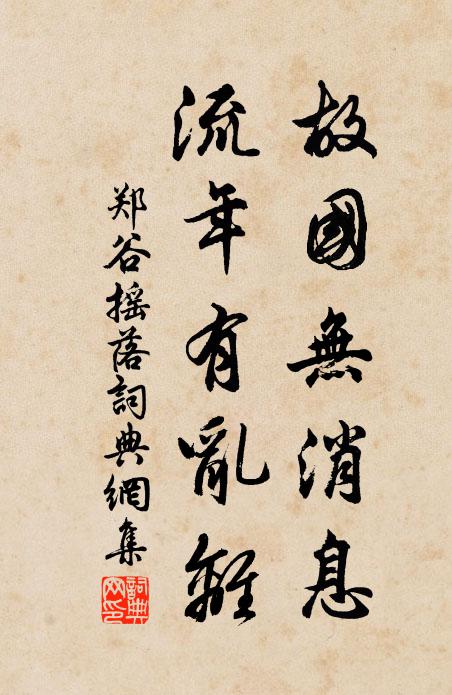 故國無消息
流年有亂離
郑谷摇落詞典網集
詞典網印